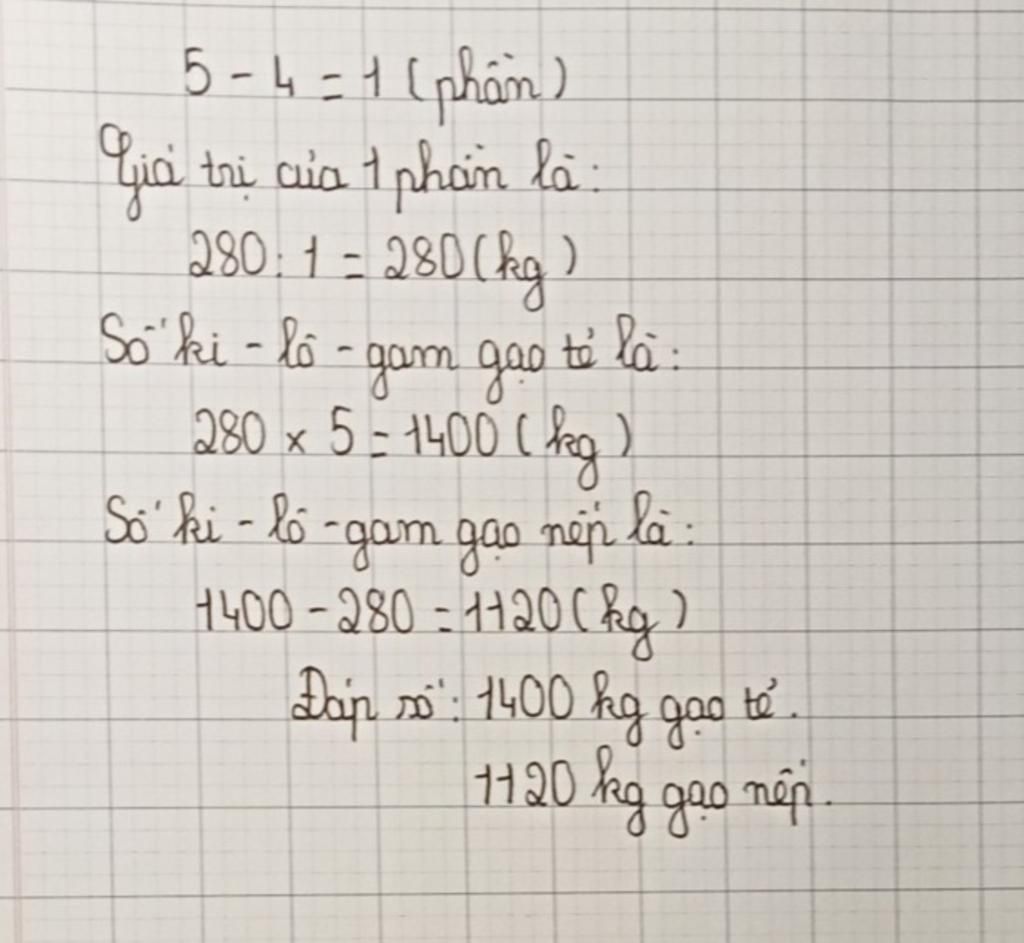 5 - 4 = 1 (phần)
Giá trị của 1 phần là:
280 : 1 = 280 (kg)
Số ki - lô - gam gạo tẻ là:
280 × 5 = 1400 (kg)
Số ki - lô - gam gạo nếp là:
1400 - 280 = 1120 (kg)
Đáp số: 1400 kg gạo tẻ.
1120 kg gạo nếp.